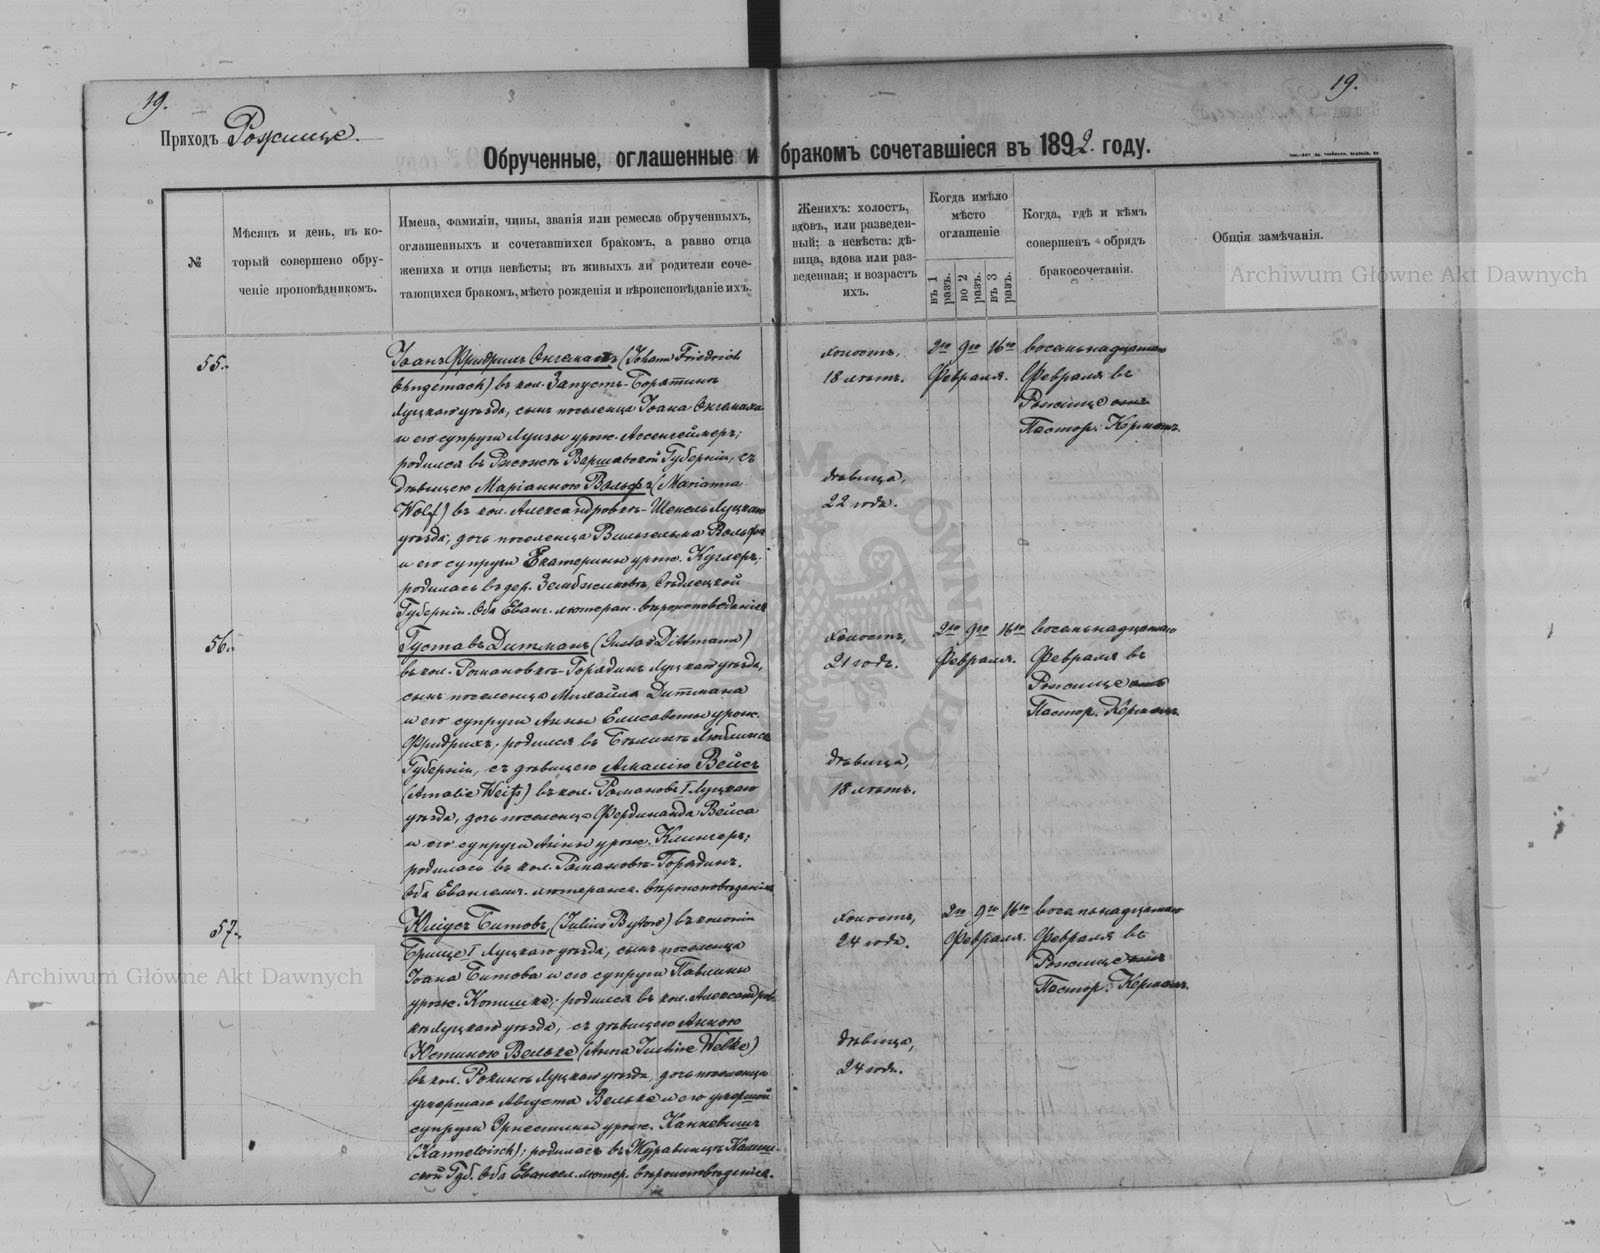 19.
19.
Приходъ Рожище.
Обрученные, оглашенные и бракомъ сочетавшіеся въ 1892 году.
№
Мѣсяцъ и день, въ ко-
торый совершено обру-
ченіе проповѣдникомъ.
Имена, фамиліи, чины, званія или ремесла обрученныхъ,
оглашенныхъ и сочетавшихся бракомъ, а равно отца
жениха и отца невѣсты; въ живыхъ ли родители соче-
тающихся бракомъ, мѣсто рожденія и вѣроисповѣданіе ихъ.
Женихъ: холостъ,
вдовъ, или разведен-
ный; а невѣста: дѣ-
вица, вдова или раз-
веденная; и возрастъ
ихъ.
Когда имѣло
мѣсто
оглашеніе
въ 1 разъ.
во 2 разъ.
въ 3 разъ.
Когда, гдѣ и кѣмъ
совершенъ обрядъ
бракосочетанія.
Общія замѣчанія.
Archiwum Główne Akt Dawnych
55.
Іоанъ Фридрихъ Энгемахъ (Johann Friedrich
Engemach) въ кол. Запустъ-Борятинъ
Луцкаго уѣзда, сынъ поселенца Іоана Энгемаха
и его супруги Луизы урож.
родился въ Варшавской Губерніи, съ
дѣвицею Маріанною Вольфъ (Marianna
Wolf) въ кол. Александровкѣ- Луцкаго
уѣзда, дочь поселенца Вильгельма Вольфа
и его супруги Екатерины урож. Куглеръ;
родилась въ дер. Сѣдлецкой
Губерніи. Оба Еванг. лютеран. вѣроисповѣданія
холостъ,
18 лѣтъ.
дѣвица,
22 года.
2го 9го 16го
Февраля.
восемьнадцатаго
Февраля въ
Рожище
Пасторъ Керманъ.
56.
Густавъ Дитманъ (Gustav Dittmann)
въ кол. Романовкѣ- Луцкаго уѣзда,
сынъ поселенца Михайла Дитмана
и его супруги Анны Елисаветы урож.
Фридрихъ; родился въ Люблинск.
Губерніи, съ дѣвицею Амалію Вейсъ
(Amalie Weiß) въ кол. Романовъ I Луцкаго
уѣзда, дочь поселенца Фердинанда Вейса
и его супруги Анны урож. Клингеръ;
родилась въ кол. Романовъ-
Оба Евангелич. лютеранск. вѣроисповѣданія
холостъ,
21 годъ.
дѣвица,
18 лѣтъ.
2го 9го 16го
Февраля.
восемьнадцатаго
Февраля въ
Рожище
Пастор. Керманъ.
57.
Юліусъ Битовъ (Julius Bytow) въ колоніи
Брище I Луцкаго уѣзда, сынъ поселенца
Іоана Битова и его супруги Павлины
урож. родился въ кол. Александров-
кѣ Луцкаго уѣзда, съ дѣвицею Анною
Юстиною Вельке (Anna Justine Welke)
въ кол. Рокинъ Луцкаго уѣзда, дочь поселенца
умершаго Августа Вельке и его умершой
супруги Эрнестины урож. Канневишъ
(Kannewisch); родилась въ
ской Губ. Оба Евангел. лютер. вѣроисповѣданія.
холостъ,
24 года.
дѣвица,
24 года.
2го 9го 16го
Февраля.
восемьнадцатаго
Февраля въ
Рожище
Пастор. Керманъ.
Archiwum Główne Akt Dawnych